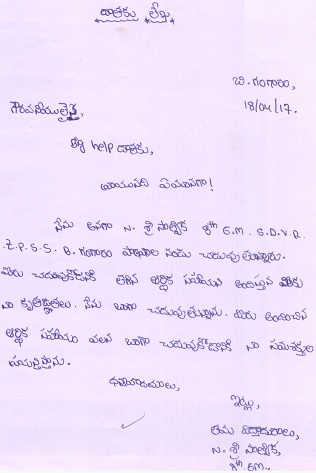 దాతకు లేఖ
బి. గంగారం,
18/04/17.
గౌరవనీయులైన,
help దాతకు,
వ్రాయునది ఏమనగా!
నేను అనగా N. శ్రీ సాత్విక 8th E.M. S.D.V.R.
Z.P.S.S. B. గంగారం పాఠశాల నందు చదువుతున్నాను.
మీరు చదువుకోడానికి తగిన ఆర్థిక సహాయం అందిస్తున్న మీకు
నా కృతజ్ఞతలు. నేను బాగా చదువుతున్నాను. మీరు అందించిన
ఆర్థిక సహాయం వలన బాగా చదువుకోడానికి నా
ధన్యవాదములు,
ఇట్లు,
తమ విద్యార్థురాలు,
N. శ్రీ సాత్విక,
8th EM.